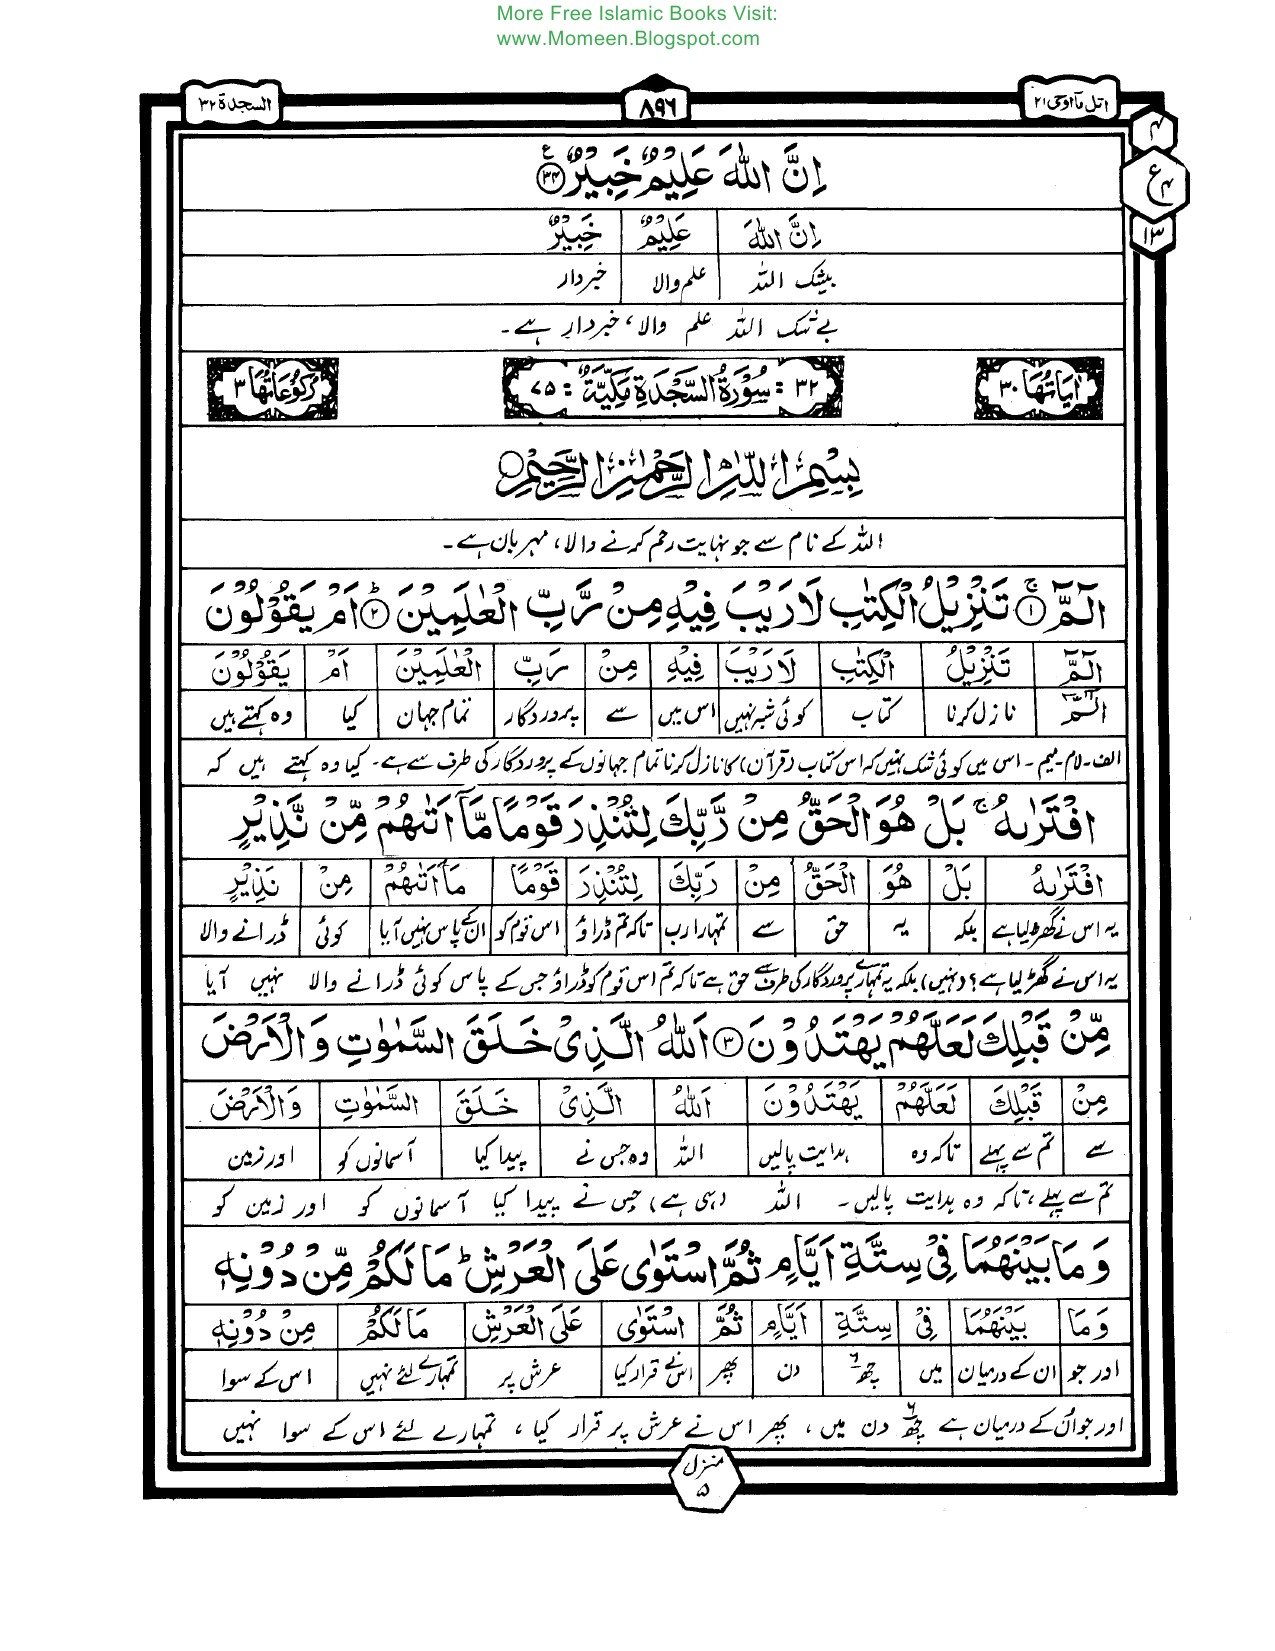 More Free Islamic Books Visit:
www.Momeen.Blogspot.com
اتل ما اوحی ۲۱
۸۹۶
السجدة ۳۲
۴
ع ۴
۱۳
اِنَّ اللّٰهَ عَلِيْمٌ خَبِيْرٌ ۳۴ ع
اِنَّ اللّٰهَ عَلِيْمٌ خَبِيْرٌ
بیشک اللہ علم والا خبردار
بے شک اللہ علم والا، خبردار ہے۔
اٰيَاتُهَا ۳۰
۳۲ : سُوْرَةُ السَّجْدَةِ مَكِّيَّةٌ : ۷۵
رُكُوْعَاتُهَا ۳
بِسْمِ اللّٰهِ الرَّحْمٰنِ الرَّحِيْمِ
اللہ کے نام سے جو نہایت رحم کرنے والا، مہربان ہے۔
الٓمّٓ ۱ ۚ تَنْزِيْلُ الْكِتٰبِ لَا رَيْبَ فِيْهِ مِنْ رَّبِّ الْعٰلَمِيْنَ ۲ ؕ اَمْ يَقُوْلُوْنَ
الٓمّٓ تَنْزِيْلُ الْكِتٰبِ لَا رَيْبَ فِيْهِ مِنْ رَبِّ الْعٰلَمِيْنَ اَمْ يَقُوْلُوْنَ
الٓمّٓ نازل کرنا کتاب کوئی شبہ نہیں اس میں سے پروردگار تمام جہان کیا وہ کہتے ہیں
الف۔لام۔میم۔ اس میں کوئی شک نہیں کہ اس کتاب (قرآن) کا نازل کرنا تمام جہانوں کے پروردگار کی طرف سے ہے۔ کیا وہ کہتے ہیں کہ
افْتَرٰىهُ ۚ بَلْ هُوَ الْحَقُّ مِنْ رَّبِّكَ لِتُنْذِرَ قَوْمًا مَّاۤ اَتٰىهُمْ مِّنْ نَّذِيْرٍ
افْتَرٰىهُ بَلْ هُوَ الْحَقُّ مِنْ رَبِّكَ لِتُنْذِرَ قَوْمًا مَاۤ اَتٰىهُمْ مِنْ نَذِيْرٍ
یہ اس نے گھڑ لیا ہے بلکہ یہ حق سے تمہارا رب تاکہ تم ڈراؤ اس قوم کو ان کے پاس نہیں آیا کوئی ڈرانے والا
یہ اس نے گھڑ لیا ہے؟ (نہیں) بلکہ یہ تمہارے پروردگار کی طرف سے حق ہے تاکہ تم اس قوم کو ڈراؤ جس کے پاس کوئی ڈرانے والا نہیں آیا
مِّنْ قَبْلِكَ لَعَلَّهُمْ يَهْتَدُوْنَ ۳ اَللّٰهُ الَّذِيْ خَلَقَ السَّمٰوٰتِ وَالْاَرْضَ
مِنْ قَبْلِكَ لَعَلَّهُمْ يَهْتَدُوْنَ اَللّٰهُ الَّذِيْ خَلَقَ السَّمٰوٰتِ وَالْاَرْضَ
سے تم سے پہلے تاکہ وہ ہدایت پالیں اللہ وہ جس نے پیدا کیا آسمانوں کو اور زمین
تم سے پہلے، تاکہ وہ ہدایت پالیں۔ اللہ (ہی ہے) جس نے پیدا کیا آسمانوں کو اور زمین کو
وَمَا بَيْنَهُمَا فِيْ سِتَّةِ اَيَّامٍ ثُمَّ اسْتَوٰى عَلَى الْعَرْشِ ؕ مَا لَكُمْ مِّنْ دُوْنِهٖ
وَمَا بَيْنَهُمَا فِيْ سِتَّةِ اَيَّامٍ ثُمَّ اسْتَوٰى عَلَى الْعَرْشِ مَا لَكُمْ مِنْ دُوْنِهٖ
اور جو ان کے درمیان میں چھ ۶ دن پھر اس نے قرار کیا عرش پر تمہارے لئے نہیں اس کے سوا
اور جو اُن کے درمیان ہے چھ ۶ دن میں، پھر اس نے عرش پر قرار کیا، تمہارے لئے اس کے سوا نہیں
منزل
۵